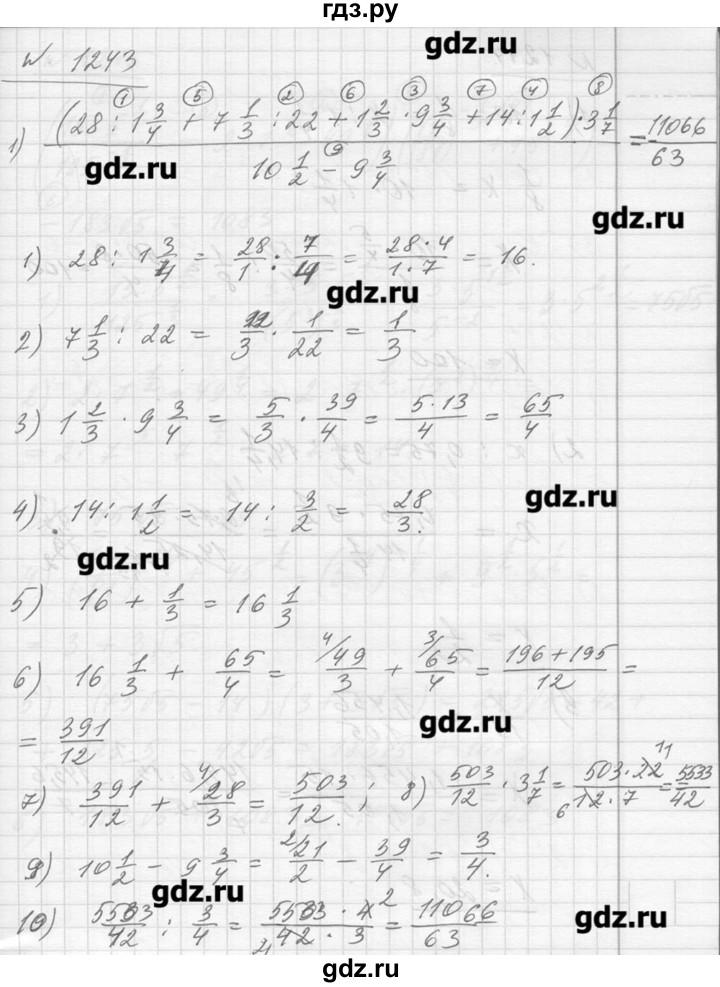 гдз.ру
gdz.ru
№ 1243
① ⑤ ② ⑥ ③ ⑦ ④ ⑧
1) (28 : 1 3/4 + 7 1/3 : 22 + 1 2/3 · 9 3/4 + 14 : 1 1/2) · 3 1/7 = 11066/63
⑨
10 1/2 − 9 3/4
gdz.ru
gdz.ru
1) 28 : 1 3/4 = 28/1 : 7/4 = 28·4/1·7 = 16.
gdz.ru
2) 7 1/3 : 22 = 22/3 · 1/22 = 1/3
3) 1 2/3 · 9 3/4 = 5/3 · 39/4 = 5·13/4 = 65/4
gdz.ru
4) 14 : 1 1/2 = 14 : 3/2 = 28/3.
gdz.ru
5) 16 + 1/3 = 16 1/3
6) 16 1/3 + 65/4 = 4/49/3 + 3/65/4 = 196+195/12 =
= 391/12
gdz.ru
7) 391/12 + 4/28/3 = 503/12; 8) 503/12 · 3 1/7 = 503·22 11/6 12·7 = 5533/42
9) 10 1/2 − 9 3/4 = 2/21/2 − 39/4 = 3/4.
gdz.ru
10) 5533/42 : 3/4 = 5533·4 2/21 42·3 = 11066/63
gdz.ru
gdz.ru